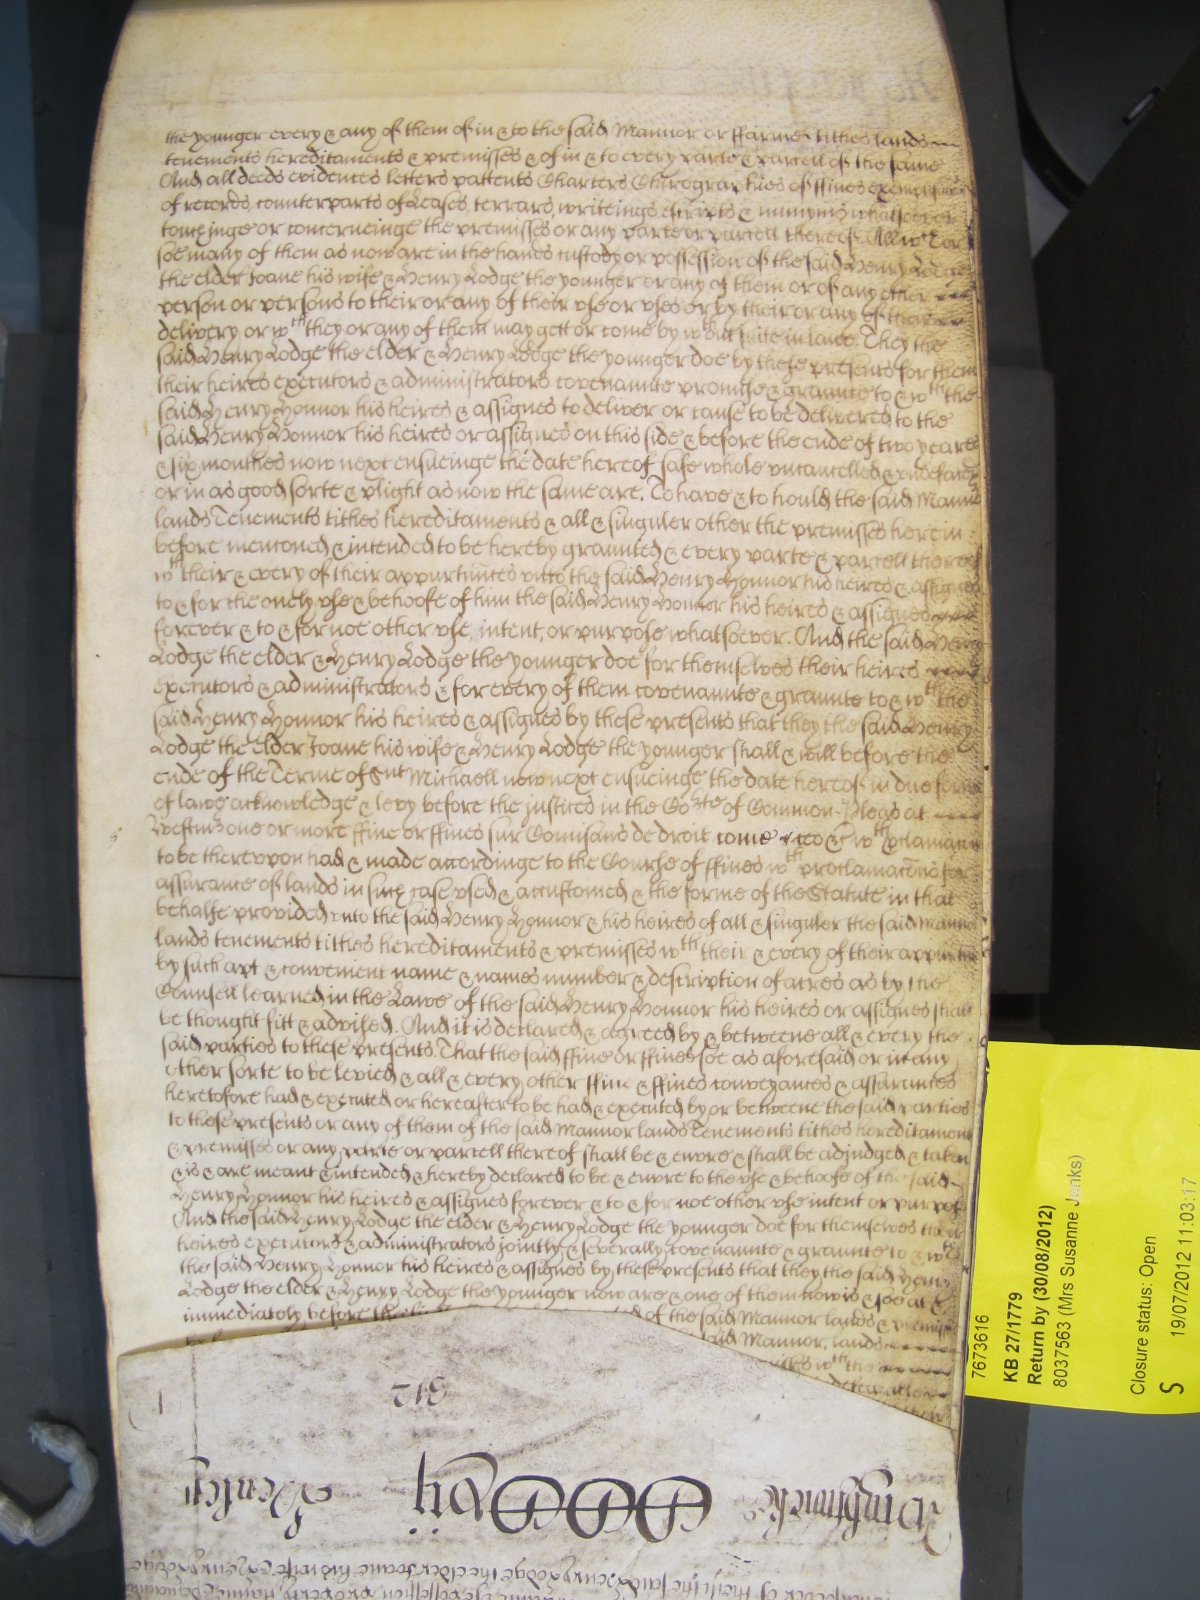 the younger every & any of them of in & to the said Mannor or ffarme tithes lands
tenements hereditaments & premisses & of in & to every parte & parcell of the same
And all deeds evidences letters pattents Charters Chirographies of ffines
of records, counterparts of Leases, terrars, writeings, escripts & munyments whatsoever
touchinge or concerneinge the premisses or any parte or parcell thereof. All wch or
soe many of them as now are in the hands custody or possession of the said Henry Lodge
the elder Joane his wife & Henry Lodge the younger or any of them or of any other
person or persons to their or any of their use or uses or by their or any of their
delivery or wth they or any of them may gett or come by wthout suite in lawe. They the
said Henry Lodge the elder & Henry Lodge the younger doe by these presents for them
their heires executors & administrators covenannte promise & graunte to & wth the
said Henry Honnor his heires & assignes to deliver or cause to be delivered to the
said Henry Honnor his heires or assignes on this side & before the ende of two yeares
& six monthes now next ensueinge the date hereof safe whole uncancelled & undefaced
or in as good sorte & plight as now the same are. To have & to hould the said Mannor
lands Tenements tithes hereditaments & all & singuler other the premisses herein
before mentoned & intended to be hereby graunted & every parte & parcell thereof
wth their & every of their appurtunces unto the said Henry Honnor his heires & assignes
to & for the onely use & behoofe of him the said Henry Honnor his heires & assignes
forever & to & for noe other use, intent, or purpose whatsoever. And the said Henry
Lodge the elder & Henry Lodge the younger doe for themselves their heires
executors & administrators & for every of them covenannte & graunte to & wth the
said Henry Honnor his heires & assignes by these presents that they the said Henry
Lodge the elder Joane his wife & Henry Lodge the younger shall & will before the
ende of the Terme of Snt Michaell now next ensueinge the date hereof in due forme
of lawe acknowledge & levy before the justices in the Corte of Common Pleas at
Westmr one or more ffine or ffines sur Conusans de droit come ceo & wth
to be thereuppon had & made accordinge to the Course of ffines wth proclamacons for
assurance of lands in such case used & accustomed & the forme of the Statute in that
behalfe provided unto the said Henry Honnor & his heires of all & singuler the said Mannor
lands tenements tithes hereditaments & premisses wth their & every of their
by such apt & convenient name & names number & description of acres as by the
Counsell learned in the Lawe of the said Henry Honnor his heires or assignes shall
be thought fitt & advised. And it is declared & agreed by & betweene all & every the
said parties to these presents. That the said ffine or ffines soe as aforesaid or in any
other sorte to be levied & all & every other ffine & ffines conveyances & assurances
heretofore had & executed or hereafter to be had & executed by or betweene the said parties
to these presents or any of them of the said Mannor lands Tenements tithes hereditaments
& premisses or any parte or parcell thereof shall be & enure & shall be adjudged & taken
& is & are meant & intended & hereby declared to be & enure to the use & behoofe of the said
Henry Honnor his heires & assignes forever & to & for noe other use intent or purpose
And the said Henry Lodge the elder & Henry Lodge the younger doe for themselves their
heires executors & administrators jointly & severally covenannte & graunte to & wth
the said Henry Honnor his heires & assignes by these presents that they the said Henry
Lodge the elder & Henry Lodge the younger now are & one of them now is & soe at &
immediately before the of the said Mannor lands & premisses
said Mannor, lands
wth the
312
7673616
KB 27/1779
Return by (30/08/2012)
8037563 (Mrs Susanne Jenks)
Closure status: Open
S
19/07/2012 11:03:17